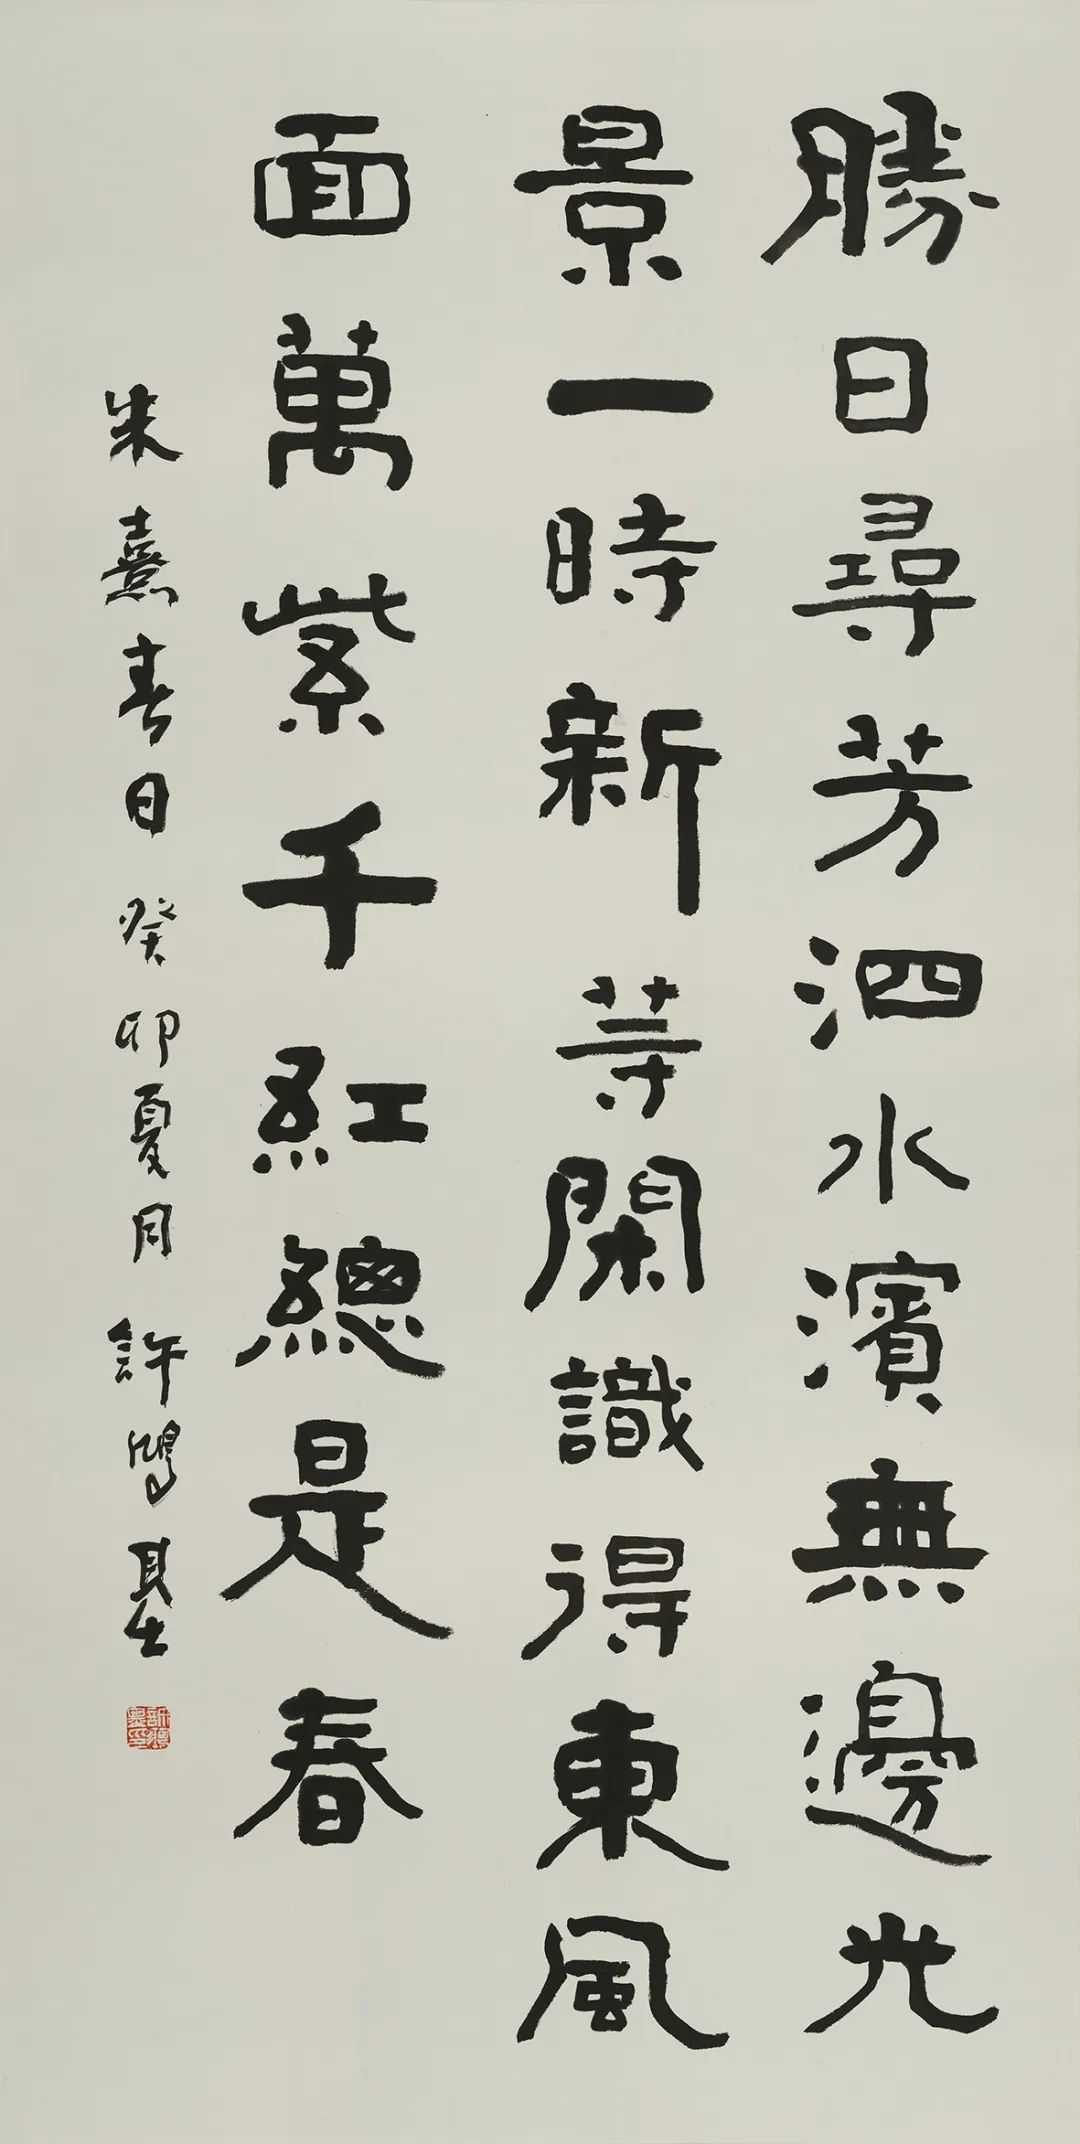 勝日尋芳泗水濱無邊光
景一時新等閑識得東風
面萬紫千紅總是春
朱熹春日 癸卯夏月 許鴻基